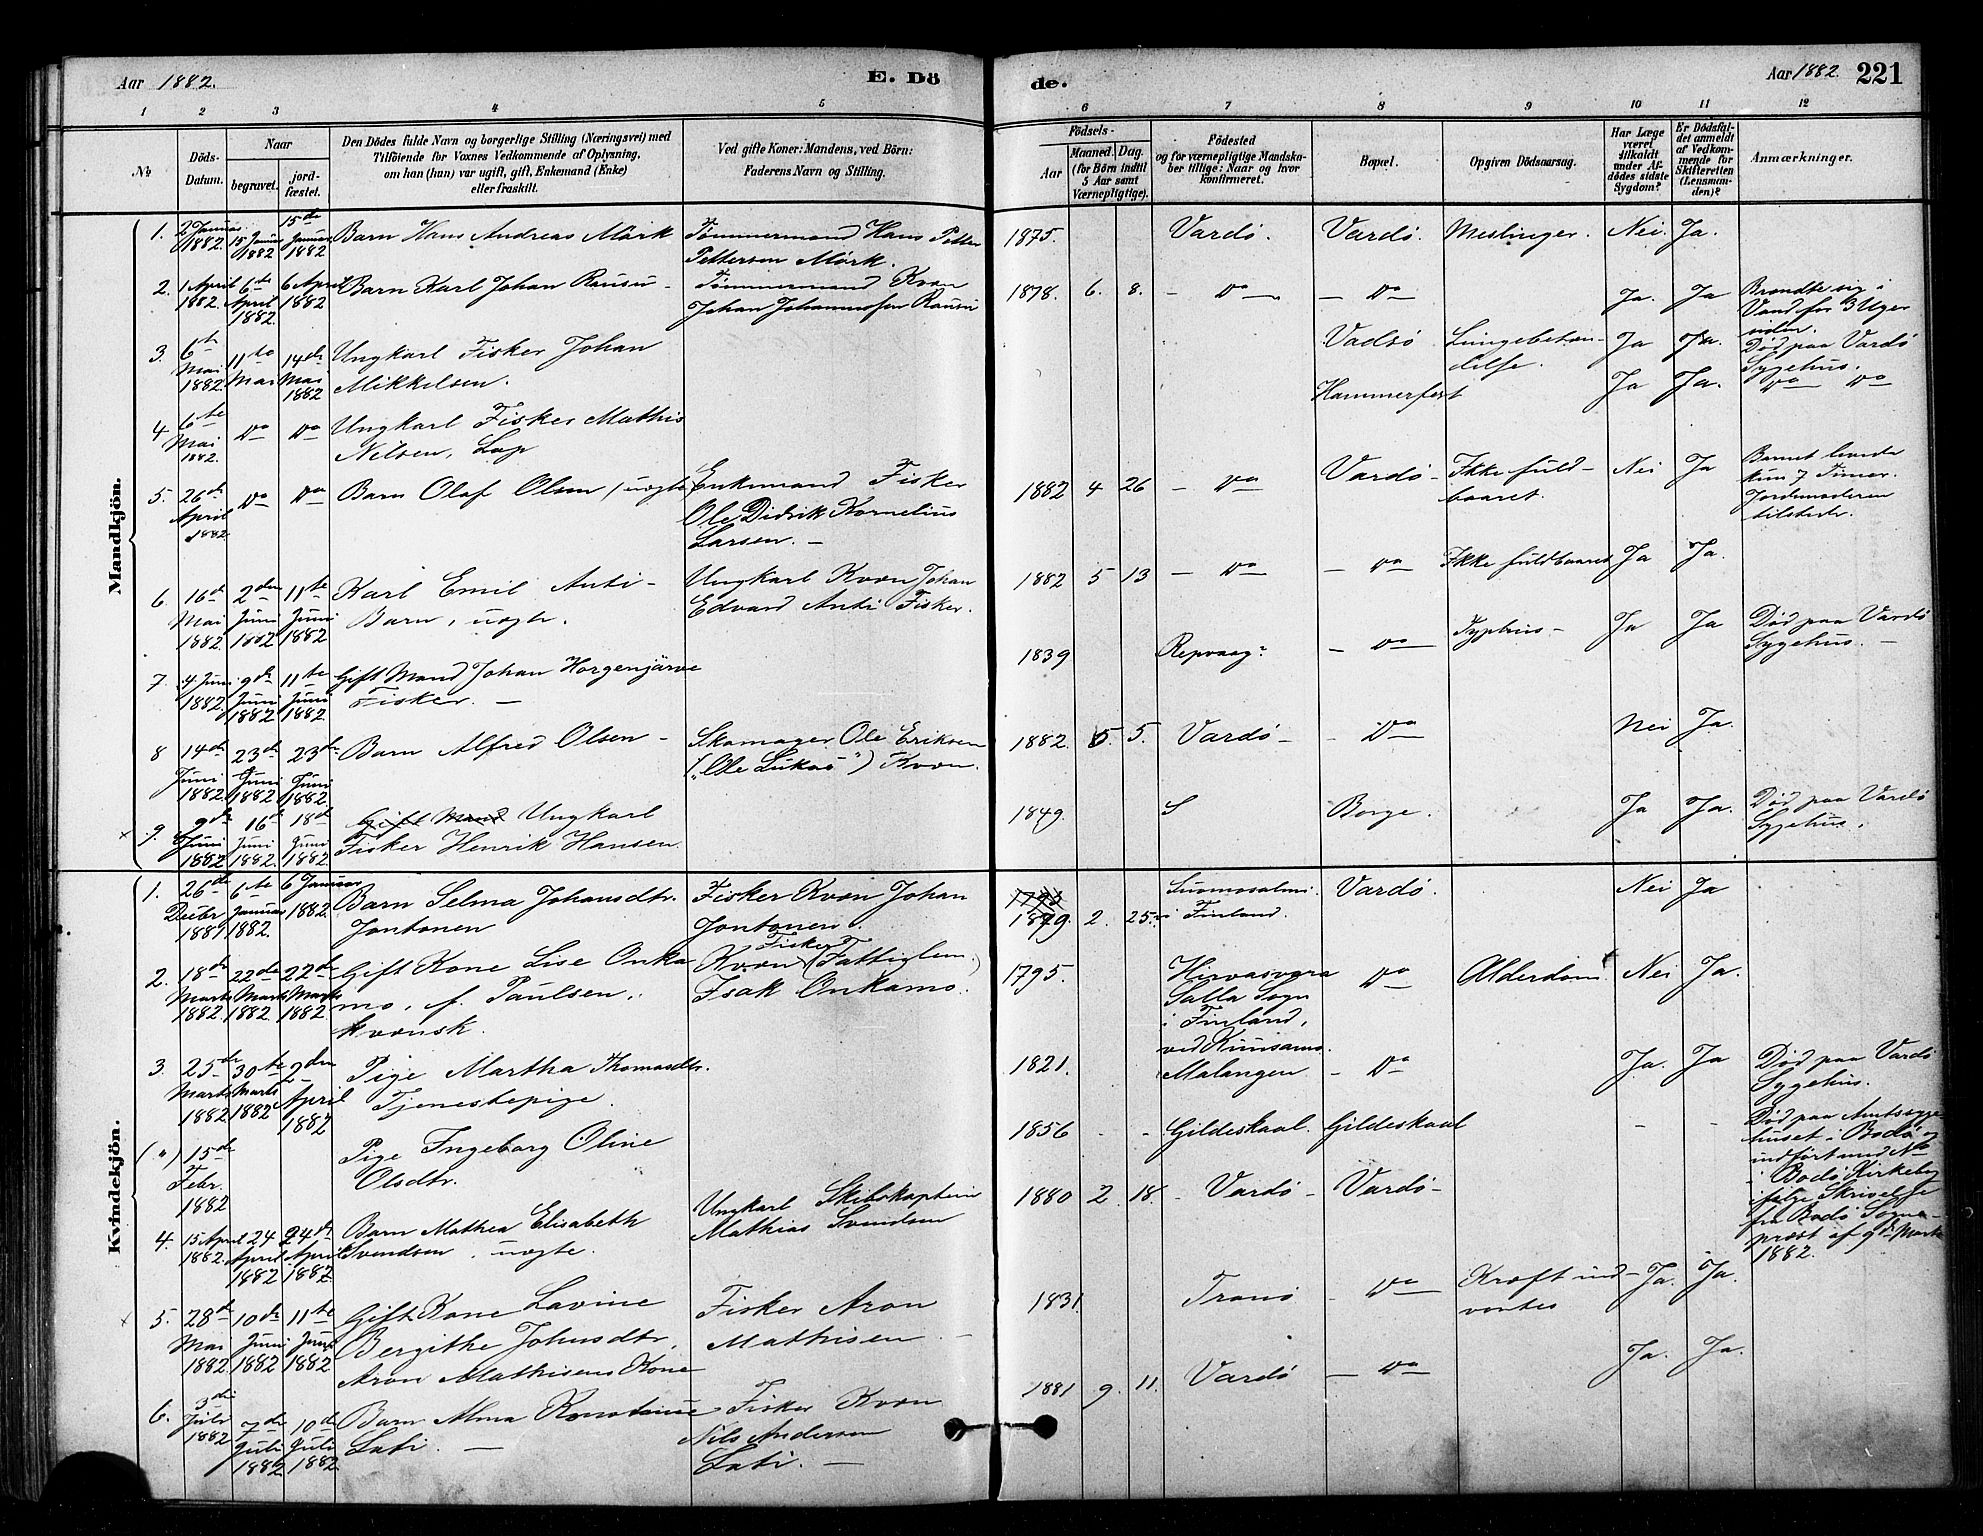 Aar 1882. E. Dö
1 2 3 4 5
No
Döds-
Datum.
Naar
begravet.
jord-
fæstet.
Den Dödes fulde Navn og borgerlige Stilling (Næringsvei) med
Tilföiende for Voxnes Vedkommende af Oplysning,
om han (hun) var ugift, gift, Enkemand (Enke)
eller fraskilt.
Ved gifte Koner: Mandens, ved Börn:
Faderens Navn og Stilling.
de. Aar 1882. 221
6 7 8 9 10 11 12
Födsels-
Aar
Maaned. Dag.
(for Börn indtil
5 Aar samt
Værnepligtige).
Födested
og for værnepligtige Mandska-
ber tillige: Naar og hvor
konfirmeret.
Bopæl.
Opgiven Dödsaarsag.
Har Læge
været
tilkaldt
under Af-
dödes sidste
Sygdom?
Er Dödsfal-
det anmeldt
af Vedkom-
mende for
Skifteretten
(Lensman-
den)?
Anmærkninger.
Mandkjön.
1. 2 Januar 1882. 15 Januar 1882 15de Januar 1882 Barn Hans Andreas Mörk Tømmermand Hans Petter
Pettersen Mörk. 1875. Vardö. Vardö. Meslinger. Nei. Ja.
2. 1 April 1882. 6te April 1882. 6 April 1882 Barn Karl Johan Rausu - Tømmermand Kvæn
Johan Johannessen Rausu 1878. 6. 8. - Do - Do Ja. Ja Brændte sig i
Vand for 3 Uger
siden.
3. 6te Mai 1882. 11te Mai 14de Mai 1882 Ungkarl Fisker Johan
Mikkelsen. Vadsö Lungebetæn-
delse. Ja Ja. Död paa Vardö
Sygehus.
4 6te Mai 1882. Do Do Ungkarl Fisker Mathis
Nilsen, Lap Hammerfest Ja Ja. Do Do
5. 26de April 1882 Do Do Barn Olaf Olsen, uægte Enkemand Fisker
Ole Didrik Kornelius
Larsen. - 1882 4 26 - Do Vardö - Ikke fuld-
baaret. Nei Ja Barnet levede
kun 7 Timer.
Jordemoderen
tilstede.
6. 16de Mai 1882. 2den Juni 1882 11te Juni 1882 Karl Emil Anti -
Barn, uægte. Ungkarl Kvæn Johan
Edvard Anti Fisker. 1882 5 13 - Do - Do Ikke fuldbaaret Ja Ja.
7. 4 Juni 1882. 9de Juni 1882 11te Juni 1882. Gift Mand Johan Horgenjärve
Fisker. - 1839 Repvaag? - Do Typhus - Ja Ja Död paa Vardö
Sygehus. -
8 14de Juni 1882. 23de Juni 1882. 23de Juni 1882. Barn Alfred Olsen - Skomager Ole Eriksen
("Ole Lukas") Kvæn. 1882. 5. 5. Vardö - - Do Nei Ja.
9. 9de Juni 1882 16de Juni 1882. 18de Juni 1882. Gift Mand Ungkarl
Fisker Henrik Hansen. 1849. S Borge. Ja Ja. Död paa Vardö
Sygehus.
Kvindekjön.
1. 26de Decbr 1881 6te Januar 1882. 6 Januar 1882. Barn Selma Johansdtr.
Jontonen Fisker Kvæn Johan
Jontonen. 1795 1879. 2. 25. Suomosalmi
i Finland. Vardö. Nei Ja
2. 18de Marts 1882. 22de Marts 1882. 22de Marts 1882. Gift Kone Lise Onka
mo, f. Paulsen,
Kvænsk. Kvæn Fisker (Fattiglem)
Isak Onkamo. 1795. Hirvasvara
Salla Sogn
i Finland,
ved Kuusamo. Do Alderdom Nei Ja.
3. 25de Marts 1882 30te Marts 1882 2den April 1882 Pige Martha Thomasdtr.
Tjenestepige. 1821. Malangen - Do Ja. Ja Död paa Vardö
Sygehus.
(") 15de Febr. 1882 Pige Ingeborg Oline
Olsdtr. 1856 - - Gildeskaal. Gildeskaal - - Död paa Amtssyge
huset i Bodö og
indfört med No
- i Bodö Kirkebog
ifølge Skrivelse
fra Bodö Sogne-
præst af 9de Marts
1882.
4. 15 April 1882. 24 April 1882 24de April 1882. Barn Mathea Elisabeth
Svendsen, uægte. Ungkarl Skibskaptein
Mathias Svendsen 1880 2 18 - Vardö - Vardö -
5. 28de Mai 1882. 10de Juni 1882 11te Juni 1882 Gift Kone Lavine
Bergithe Johnsdtr,
Aron Mathisens Kone Fisker Aron
Mathisen - 1831. Tranö - Do Kræft ind-
vortes Ja. Ja.
6. 3die Juli 1882 7de Juli 1882 10de Juli 1882 Barn Alma Konstanse
Lati. - Fisker Kvæn
Nils Andersen
Lati. - 1881 9. 11. Vardö - Do Ja. Ja.